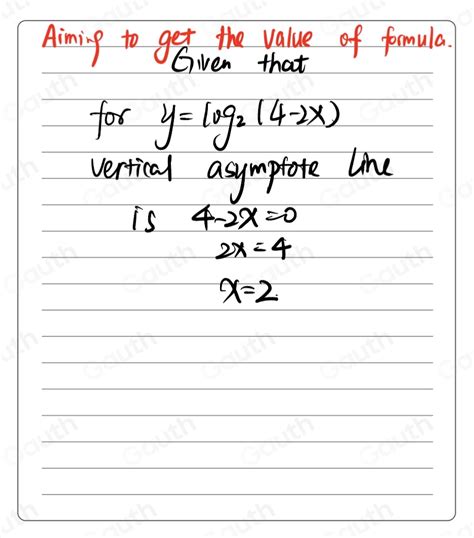 Aiming to get the value of formula.
Given that
for y = log₂ (4-2x)
vertical asymptote line
is 4-2x=0
2x=4
x=2